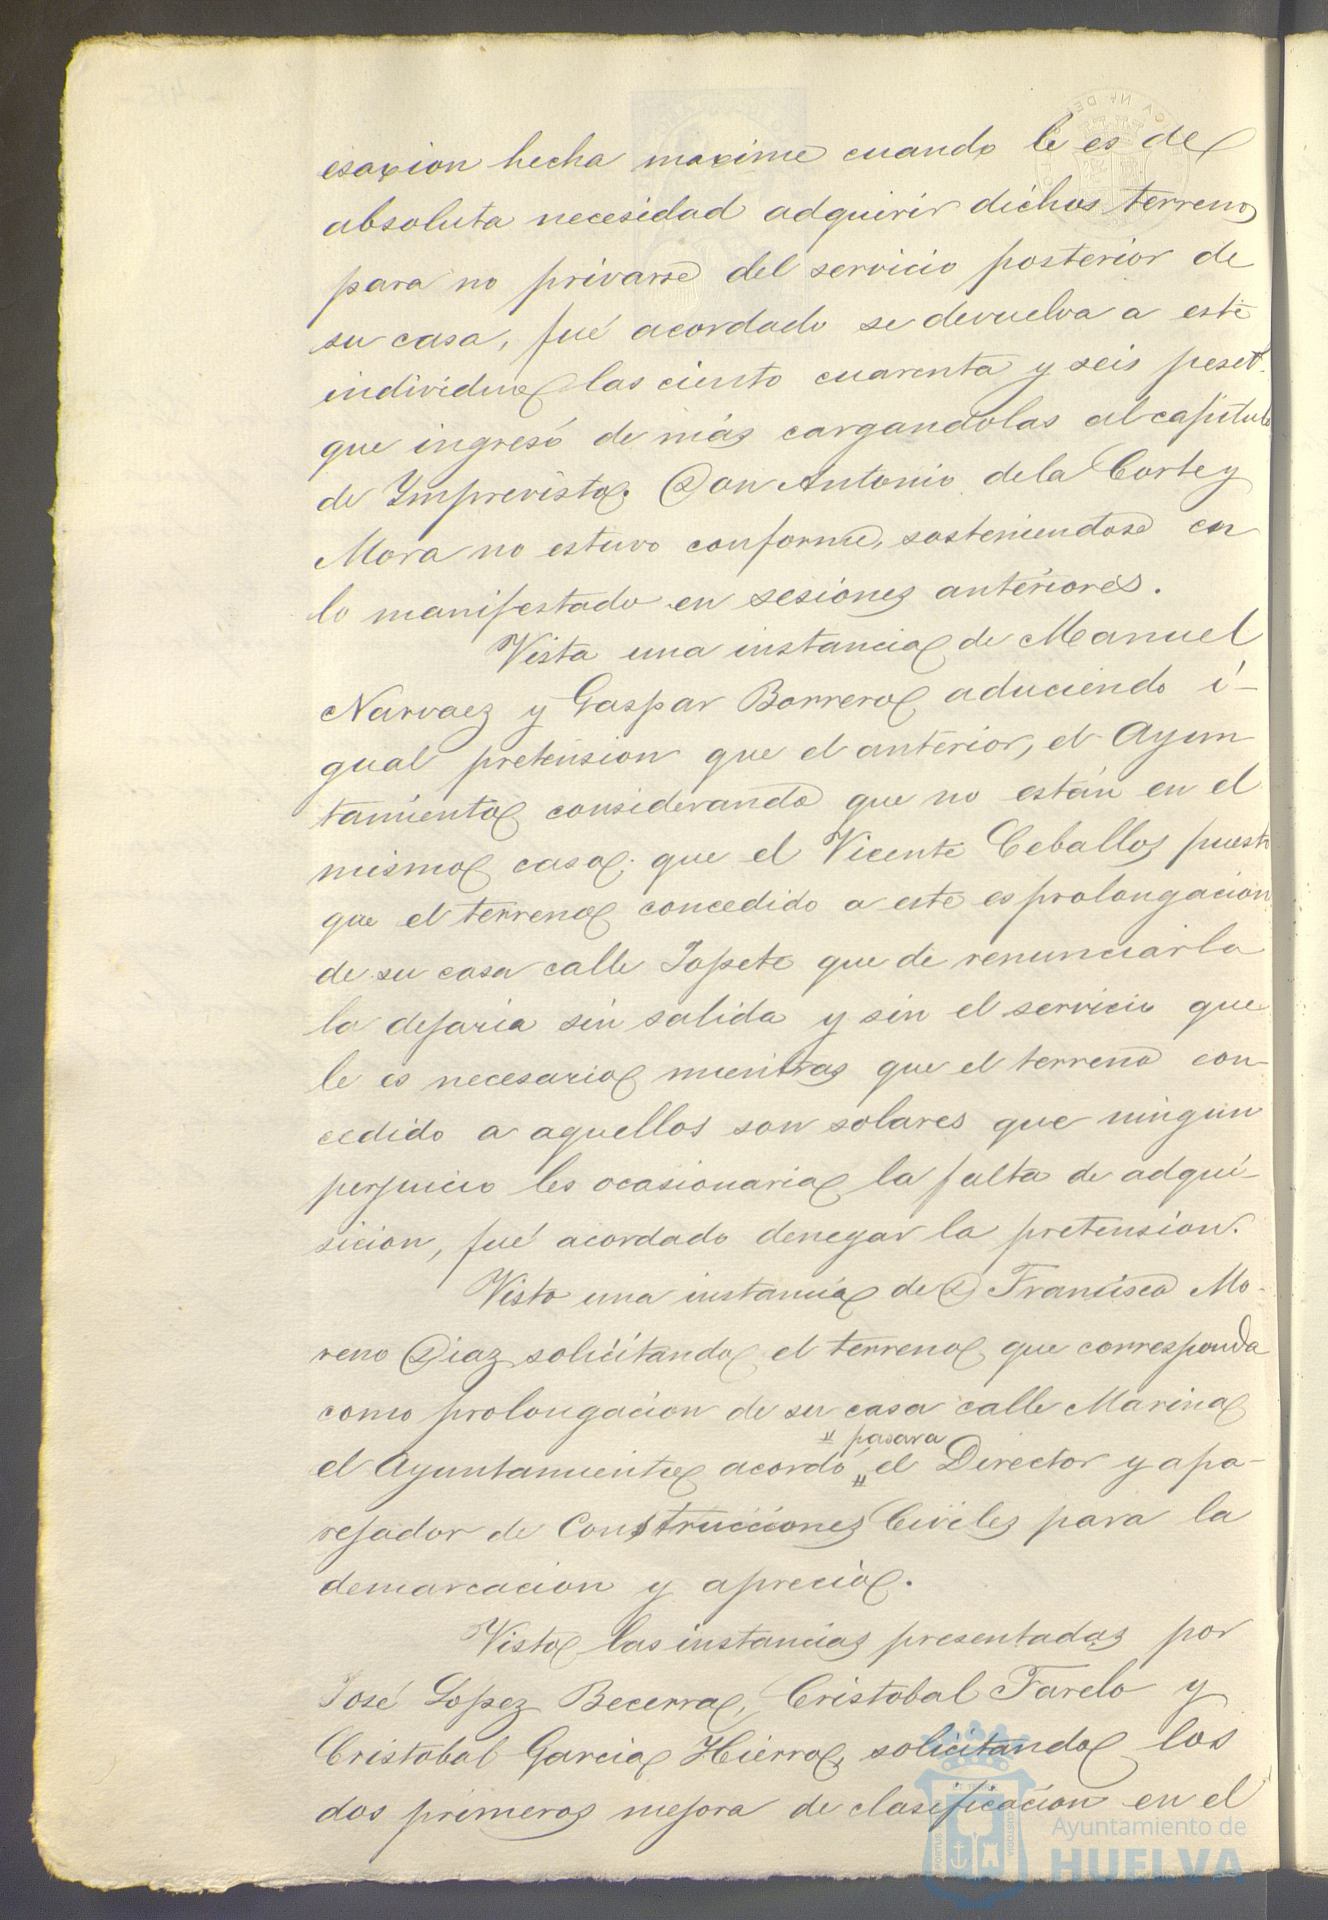 esaxion hecha maxime cuando le es de
absoluta necesidad adquirir dichos terreno
para no privarse del servicio posterior de
su casa, fué acordado se devuelva a este
individuo las ciento cuarenta y seis peset.
que ingresó de más cargandolas al capitulo
de Imprevisto. Don Antonio de la Corte y
Mora no estuvo conforme, sosteniendose en
lo manifestado en sesiones anteriores.
Vista una instancia de Manuel
Narvaez y Gaspar Borrero aduciendo i-
gual pretension que el anterior, el Ayun
tamiento considerando que no están en el
mismo caso que el Vicente Ceballos puesto
que el terreno concedido a este es prolongacion
de su casa calle Topete que de renunciarla
la dejaria sin salida y sin el servicio que
le es necesario mientras que el terreno con-
cedido a aquellos son solares que ningun
perjuicio les ocasionaria la falta de adqui-
sicion, fué acordado denegar la pretension.
Visto una instancia de D Francisco Mo-
reno Diaz solicitando el terreno que corresponda
como prolongacion de su casa calle Marina
" pasara
el Ayuntamiento acordó " el Director y apa-
rejador de Construcciones Civiles para la
demarcacion y aprecio.
Visto las instancias presentadas por
José Lopez Becerra, Cristobal Farelo y
Cristobal Garcia Hierro, solicitando los
dos primeros mejora de clasificacion en el
Ayuntamiento de
HUELVA